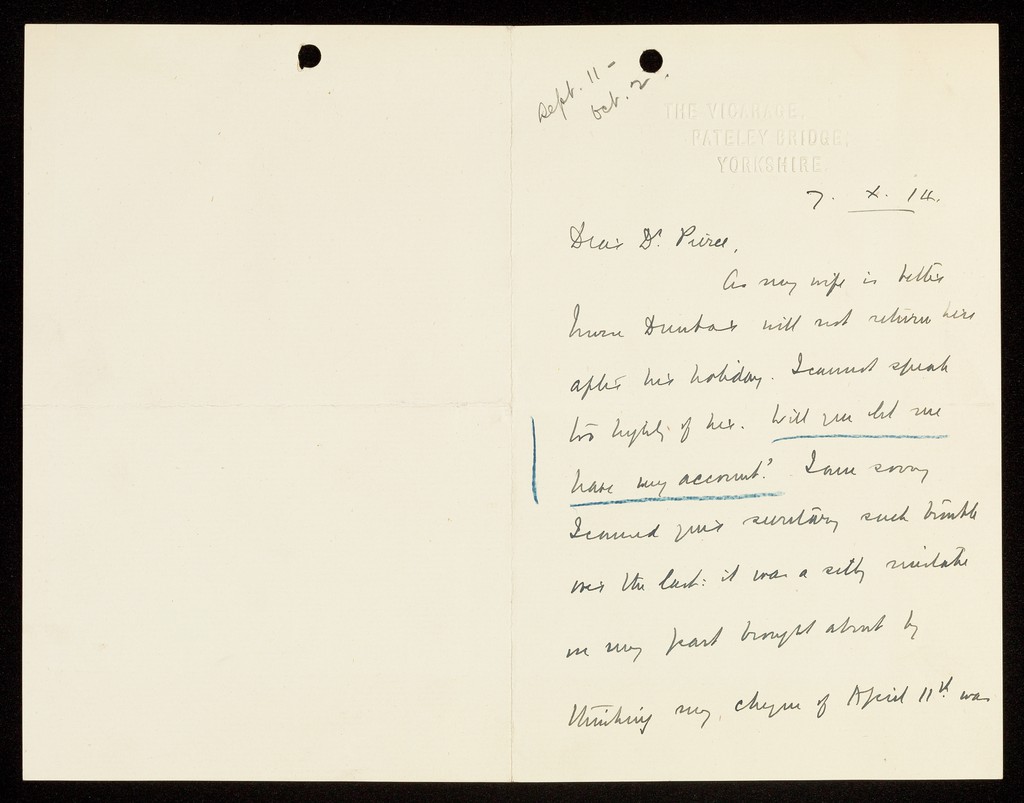 Sept. 11 -
Oct. 2.
THE VICARAGE,
PATELEY BRIDGE,
YORKSHIRE.
7. X. 14.
Dear Dr. Pierce,
As my wife is better
Nurse Dunbar will not return here
after her holiday. I cannot speak
too highly of her. Will you let me
have my account? I am sorry
I caused your secretary such trouble
over the last: it was a silly mistake
on my part brought about by
thinking my cheque of April 11th was